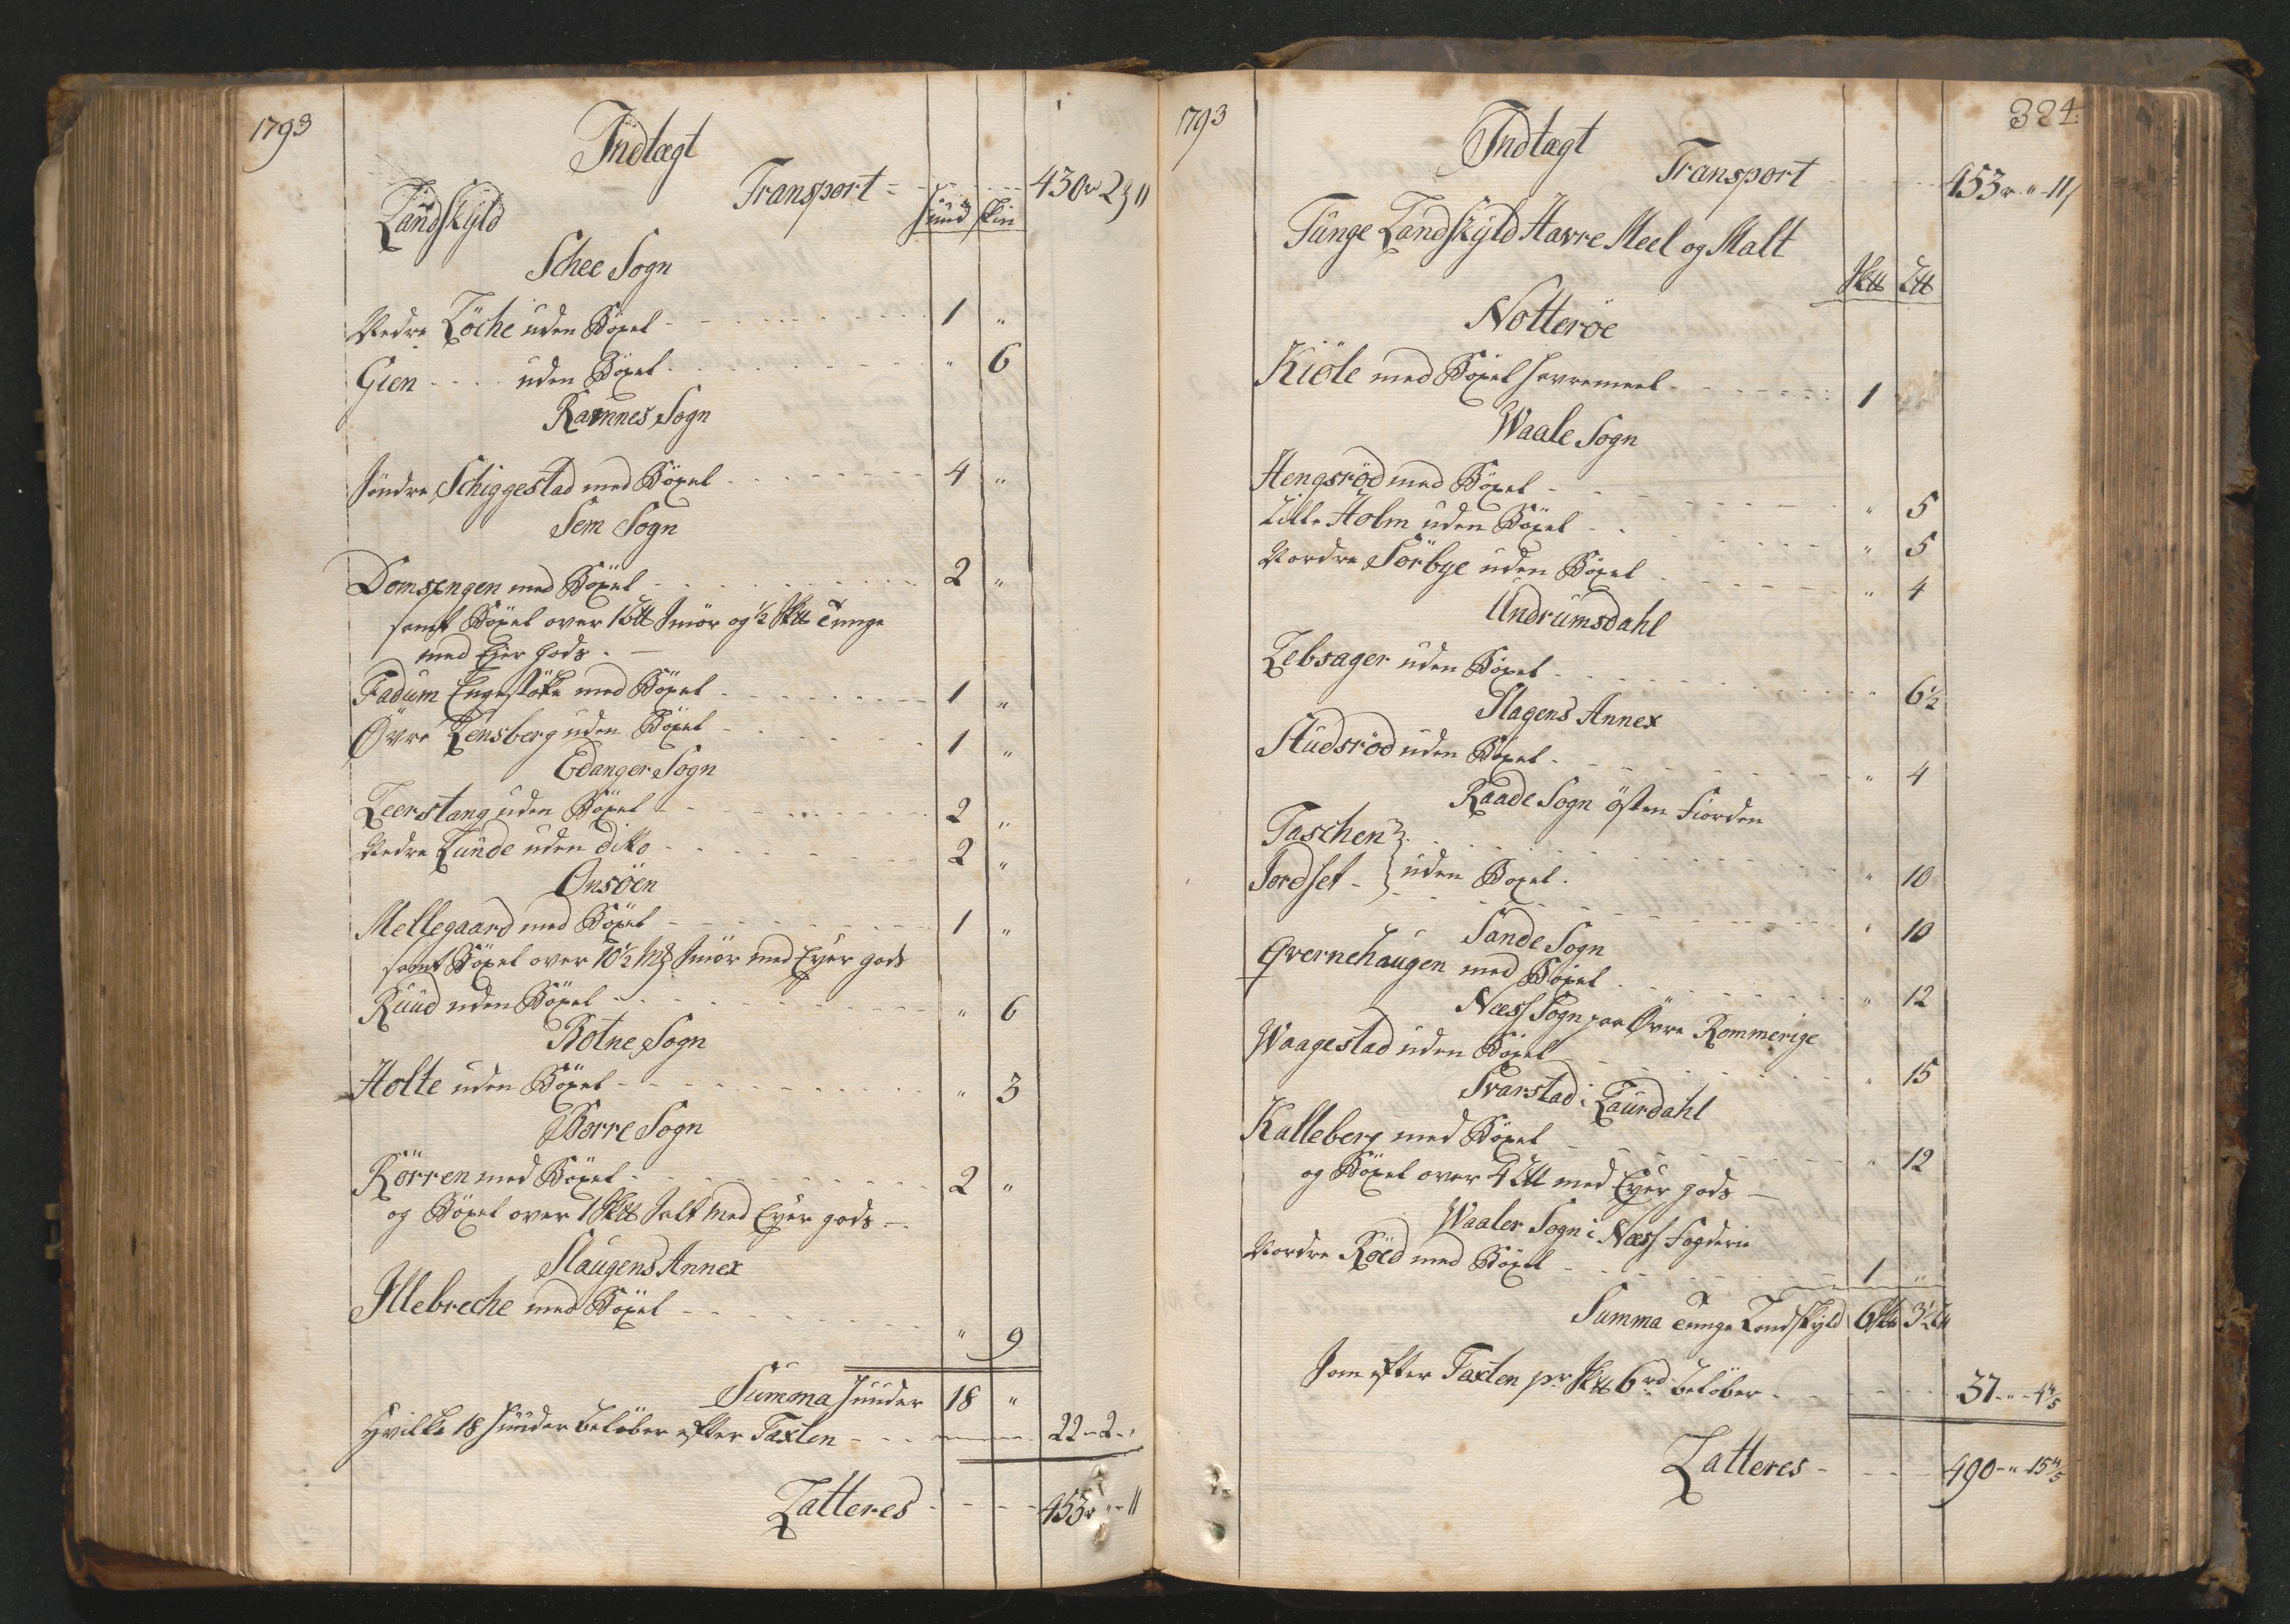 1793
Indtægt
Transport - 430 r 2 ß 11
Landskyld
huud skin
Schee Sogn
Nedre Löche uden Böxel - 1 "
Gien uden Böxel " 6
Ramnes Sogn
Söndre Schiggestad med Böxel 4 "
Sem Sogn
Domsengen med Böxel 2 "
samt Böxel over Smör og ½ Tunge
med Ejer gods. —
Fadum Engestökke med Böxel 1 "
Øvre Lensberg uden Böxel 1 "
Edanger Sogn
Leerstang uden Böxel 2 "
Nedre Lunde uden ditto 2 "
Onsöen
Mellegaard med Böxel 1 "
samt Böxel over 10½ Smör med Eyer gods
Ruud uden Böxel " 6
Botne Sogn
Holte uden Böxel " 3
Borre Sogn
Rörren med Böxel 2 "
og Böxel over 1 Salt med Eyer gods —
Slaugens Annex
Illebreche med Böxel " 9
Summa huuder 18 "
hvilke 18 huuder belöber efter Taxten 22 - 2 - "
Latteres 453 r " - 11
1793
324.
Indtægt
Transport 453 r " - 11
Tunge Landskyld Havre Meel og Malt
Notteröe
Kiöle med Böxel havremeel 1
Waale Sogn
Hengsröd med Böxel " 5
Lille Holm uden Böxel " 5
Nordre Sörbye uden Böxel " 4
Undrumsdahl
Lebsager uden Böxel " 6½
Slagens Annex
Studsröd uden Böxel " 4
Raade Sogn östen Fiorden
Taschen } " 10
Jordset - } uden Boxel. " 10
Sande Sogn
Qvernehaugen med Böxel " 12
Næss Sogn paa Øvre Rommerige
Waagestad uden Böxel " 15
Svarstad i Laurdahl
Kalleberg med Böxel " 12
og Böxel over 4 med Eyer gods —
Waaler Sogn i Næss Fogderie
Nordre Röed med Böxel 1 "
Summa Tunge Landskyld 6 3½
Som efter Taxten pr 6 rd belöber 37 - " - 4⅘
Latteres - 490 - " 15⅘